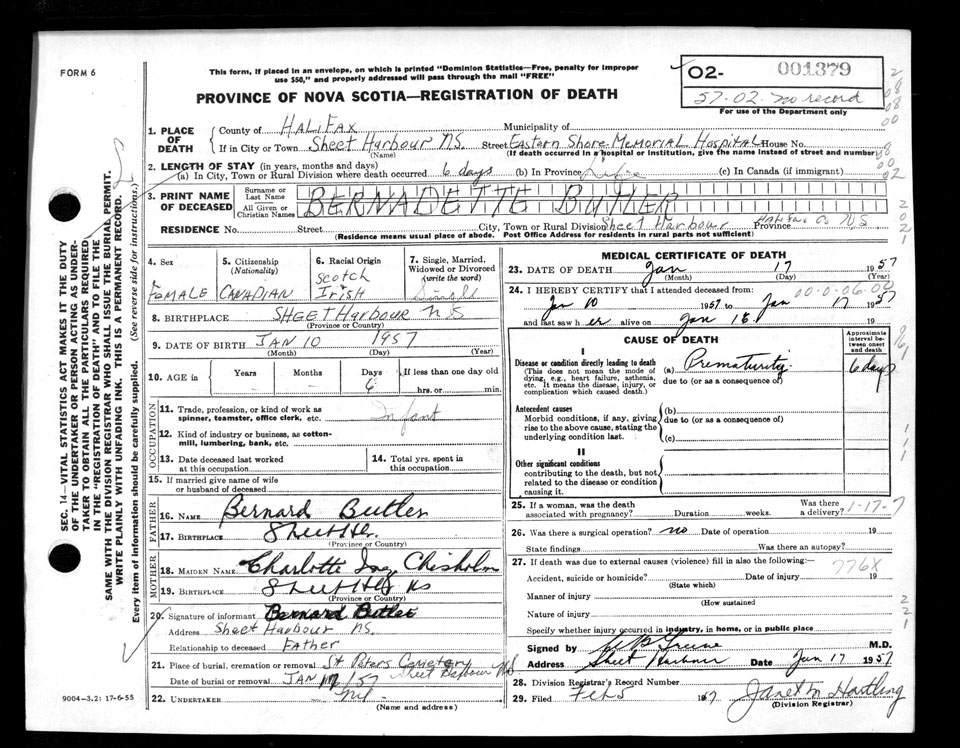 FORM 6
This form, if placed in an envelope, on which is printed "Dominion Statistics—Free, penalty for improper
use $50," and properly addressed will pass through the mail "FREE"
PROVINCE OF NOVA SCOTIA—REGISTRATION OF DEATH
02- 001379
57-02-no record
For use of the Department only
SEC. 14—VITAL STATISTICS ACT MAKES IT THE DUTY
OF THE UNDERTAKER OR PERSON ACTING AS UNDER-
TAKER TO OBTAIN ALL THE PARTICULARS REQUIRED
IN THE "REGISTRATION OF DEATH" AND TO FILE THE
SAME WITH THE DIVISION REGISTRAR WHO SHALL ISSUE THE BURIAL PERMIT.
WRITE PLAINLY WITH UNFADING INK. THIS IS A PERMANENT RECORD.
Every item of information should be carefully supplied. (See reverse side for instructions.)
1. PLACE OF DEATH
County of HALIFAX Municipality of
If in City or Town Sheet Harbour N.S. Street Eastern Shore Memorial Hospital House No.
(Name) (If death occurred in a hospital or institution, give the name instead of street and number)
2. LENGTH OF STAY (in years, months and days)
(a) In City, Town or Rural Division where death occurred 6 days (b) In Province Life (c) In Canada (if immigrant)
3. PRINT NAME OF DECEASED
Surname or Last Name
All Given or Christian Names
BERNADETTE BUTLER
RESIDENCE No. Street City, Town or Rural Division Sheet Harbour Province Halifax Co N.S.
(Residence means usual place of abode. Post Office Address for residents in rural parts not sufficient)
4. Sex FEMALE
5. Citizenship (Nationality) CANADIAN
6. Racial Origin Scotch Irish
7. Single, Married, Widowed or Divorced (write the word) Single
8. BIRTHPLACE SHEET Harbour N S
(Province or Country)
9. DATE OF BIRTH JAN 10 1957
(Month) (Day) (Year)
10. AGE in Years Months Days If less than one day old
- - 6 hrs. or min.
OCCUPATION
11. Trade, profession or kind of work as
spinner, teamster, office clerk, etc. Infant
12. Kind of industry or business, as cotton-
mill, lumbering, bank, etc.
13. Date deceased last worked
at this occupation
14. Total yrs. spent in
this occupation
15. If married give name of wife
or husband of deceased
FATHER
16. NAME Bernard Butler
17. BIRTHPLACE Sheet Hr.
(Province or Country)
MOTHER
18. MAIDEN NAME Charlotte Chisholm
19. BIRTHPLACE Sheet NS
(Province or Country)
20. Signature of informant Bernard Butler
Address Sheet Harbour NS.
Relationship to deceased Father
21. Place of burial, cremation or removal St Peters Cemetery
Sheet Harbour NS
Date of burial or removal JAN /57
22. UNDERTAKER Nil
(Name and address)
9004-3.2: 17-6-55
MEDICAL CERTIFICATE OF DEATH
23. DATE OF DEATH Jan 17 1957
(Month) (Day) (Year)
24. I HEREBY CERTIFY that I attended deceased from: 00-0-06-00
Jan 10 1957 to Jan 17 1957
and last saw her alive on Jan 18 19
CAUSE OF DEATH
Approximate interval between onset and death
I
Disease or condition directly leading to death
(This does not mean the mode of
dying, e.g., heart failure, asthenia,
etc. It means the disease, injury, or
complication which caused death.)
(a) Prematurity 6 days
due to (or as a consequence of)
Antecedent causes
Morbid conditions, if any, giving
rise to the above cause, stating the
underlying condition last.
(b)
due to (or as a consequence of)
(c)
II
Other significant conditions
contributing to the death, but not
related to the disease or condition
causing it.
25. If a woman, was the death
associated with pregnancy? Duration weeks. Was there a delivery?
1-17-7
26. Was there a surgical operation? no Date of operation 19
State findings Was there an autopsy?
27. If death was due to external causes (violence) fill in also the following: 776X
Accident, suicide or homicide? Date of injury 19
(State which)
Manner of injury
(How sustained
Nature of injury
Specify whether injury occurred in industry, in home, or in public place
Signed by M.D.
Address Sheet Harbour Date Jan 17 1957
28. Division Registrar's Record Number
29. Filed Feb 5 1957 Janet M Hartling
(Division Registrar)